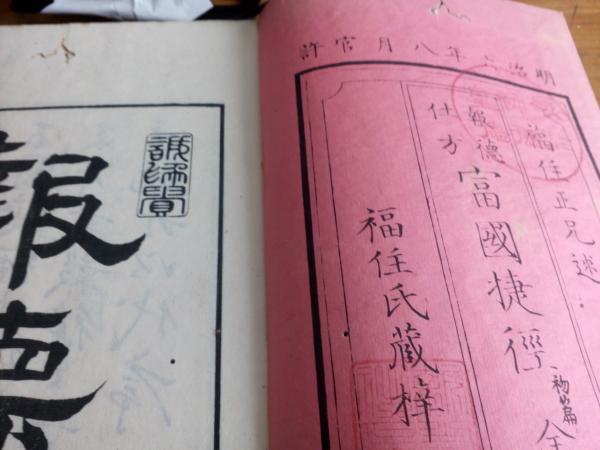 明治六年八月官許
福住正兄述
報德仕方
富國捷徑
初篇
全
福住氏藏梓
報